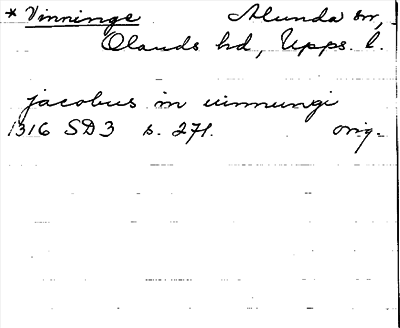 * Vinninge Alunda sn,
Olands hd, Upps. l.
jacobus in uinnungi
1316 SD3 s. 271. orig.